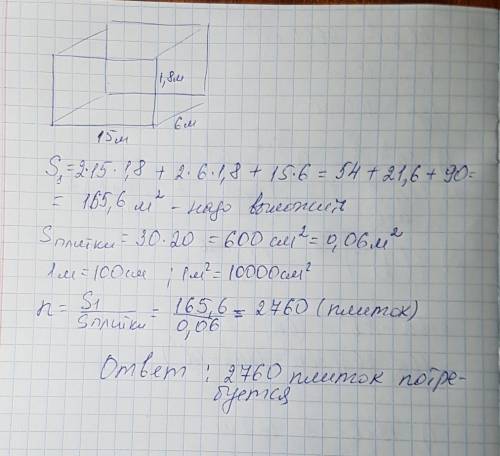 1,8м
6м
15м
S₁=2·15·1,8 + 2·6·1,8 + 15·6 = 54 + 21,6 + 90=
= 165,6 м² - надо выложить
Sплитки = 30·20 = 600 см² = 0,06 м²
1м=100см ; 1м²=10000см²
n = S1/Sплитки = 165,6/0,06 = 2760 (плиток)
Ответ : 2760 плиток потре-
буется